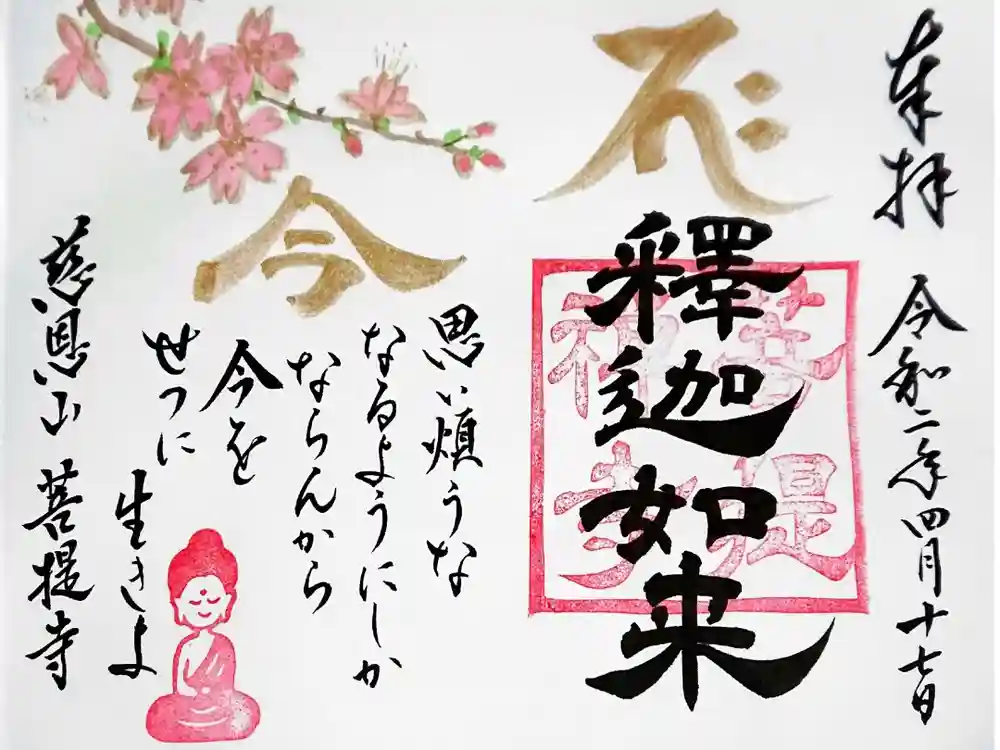 奉拝 令和二年四月十七日
釋迦如来
菩提
今
思い煩うな
なるようにしか
ならんから
今を
せつに
生きよ
慈恩山 菩提寺